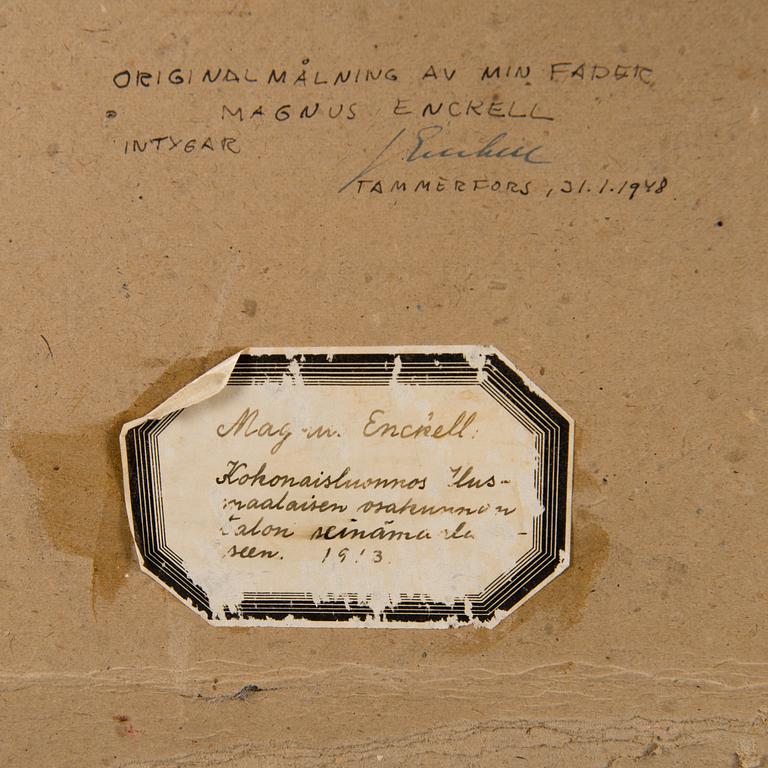 ORIGINALMÅLNING AV MIN FADER
MAGNUS ENCKELL
INTYGAR
J Enckell
TAMMERFORS, 31.1.1948
Enckell.
Kokonaisluonnos
osakunnan
talon
seen. 1913